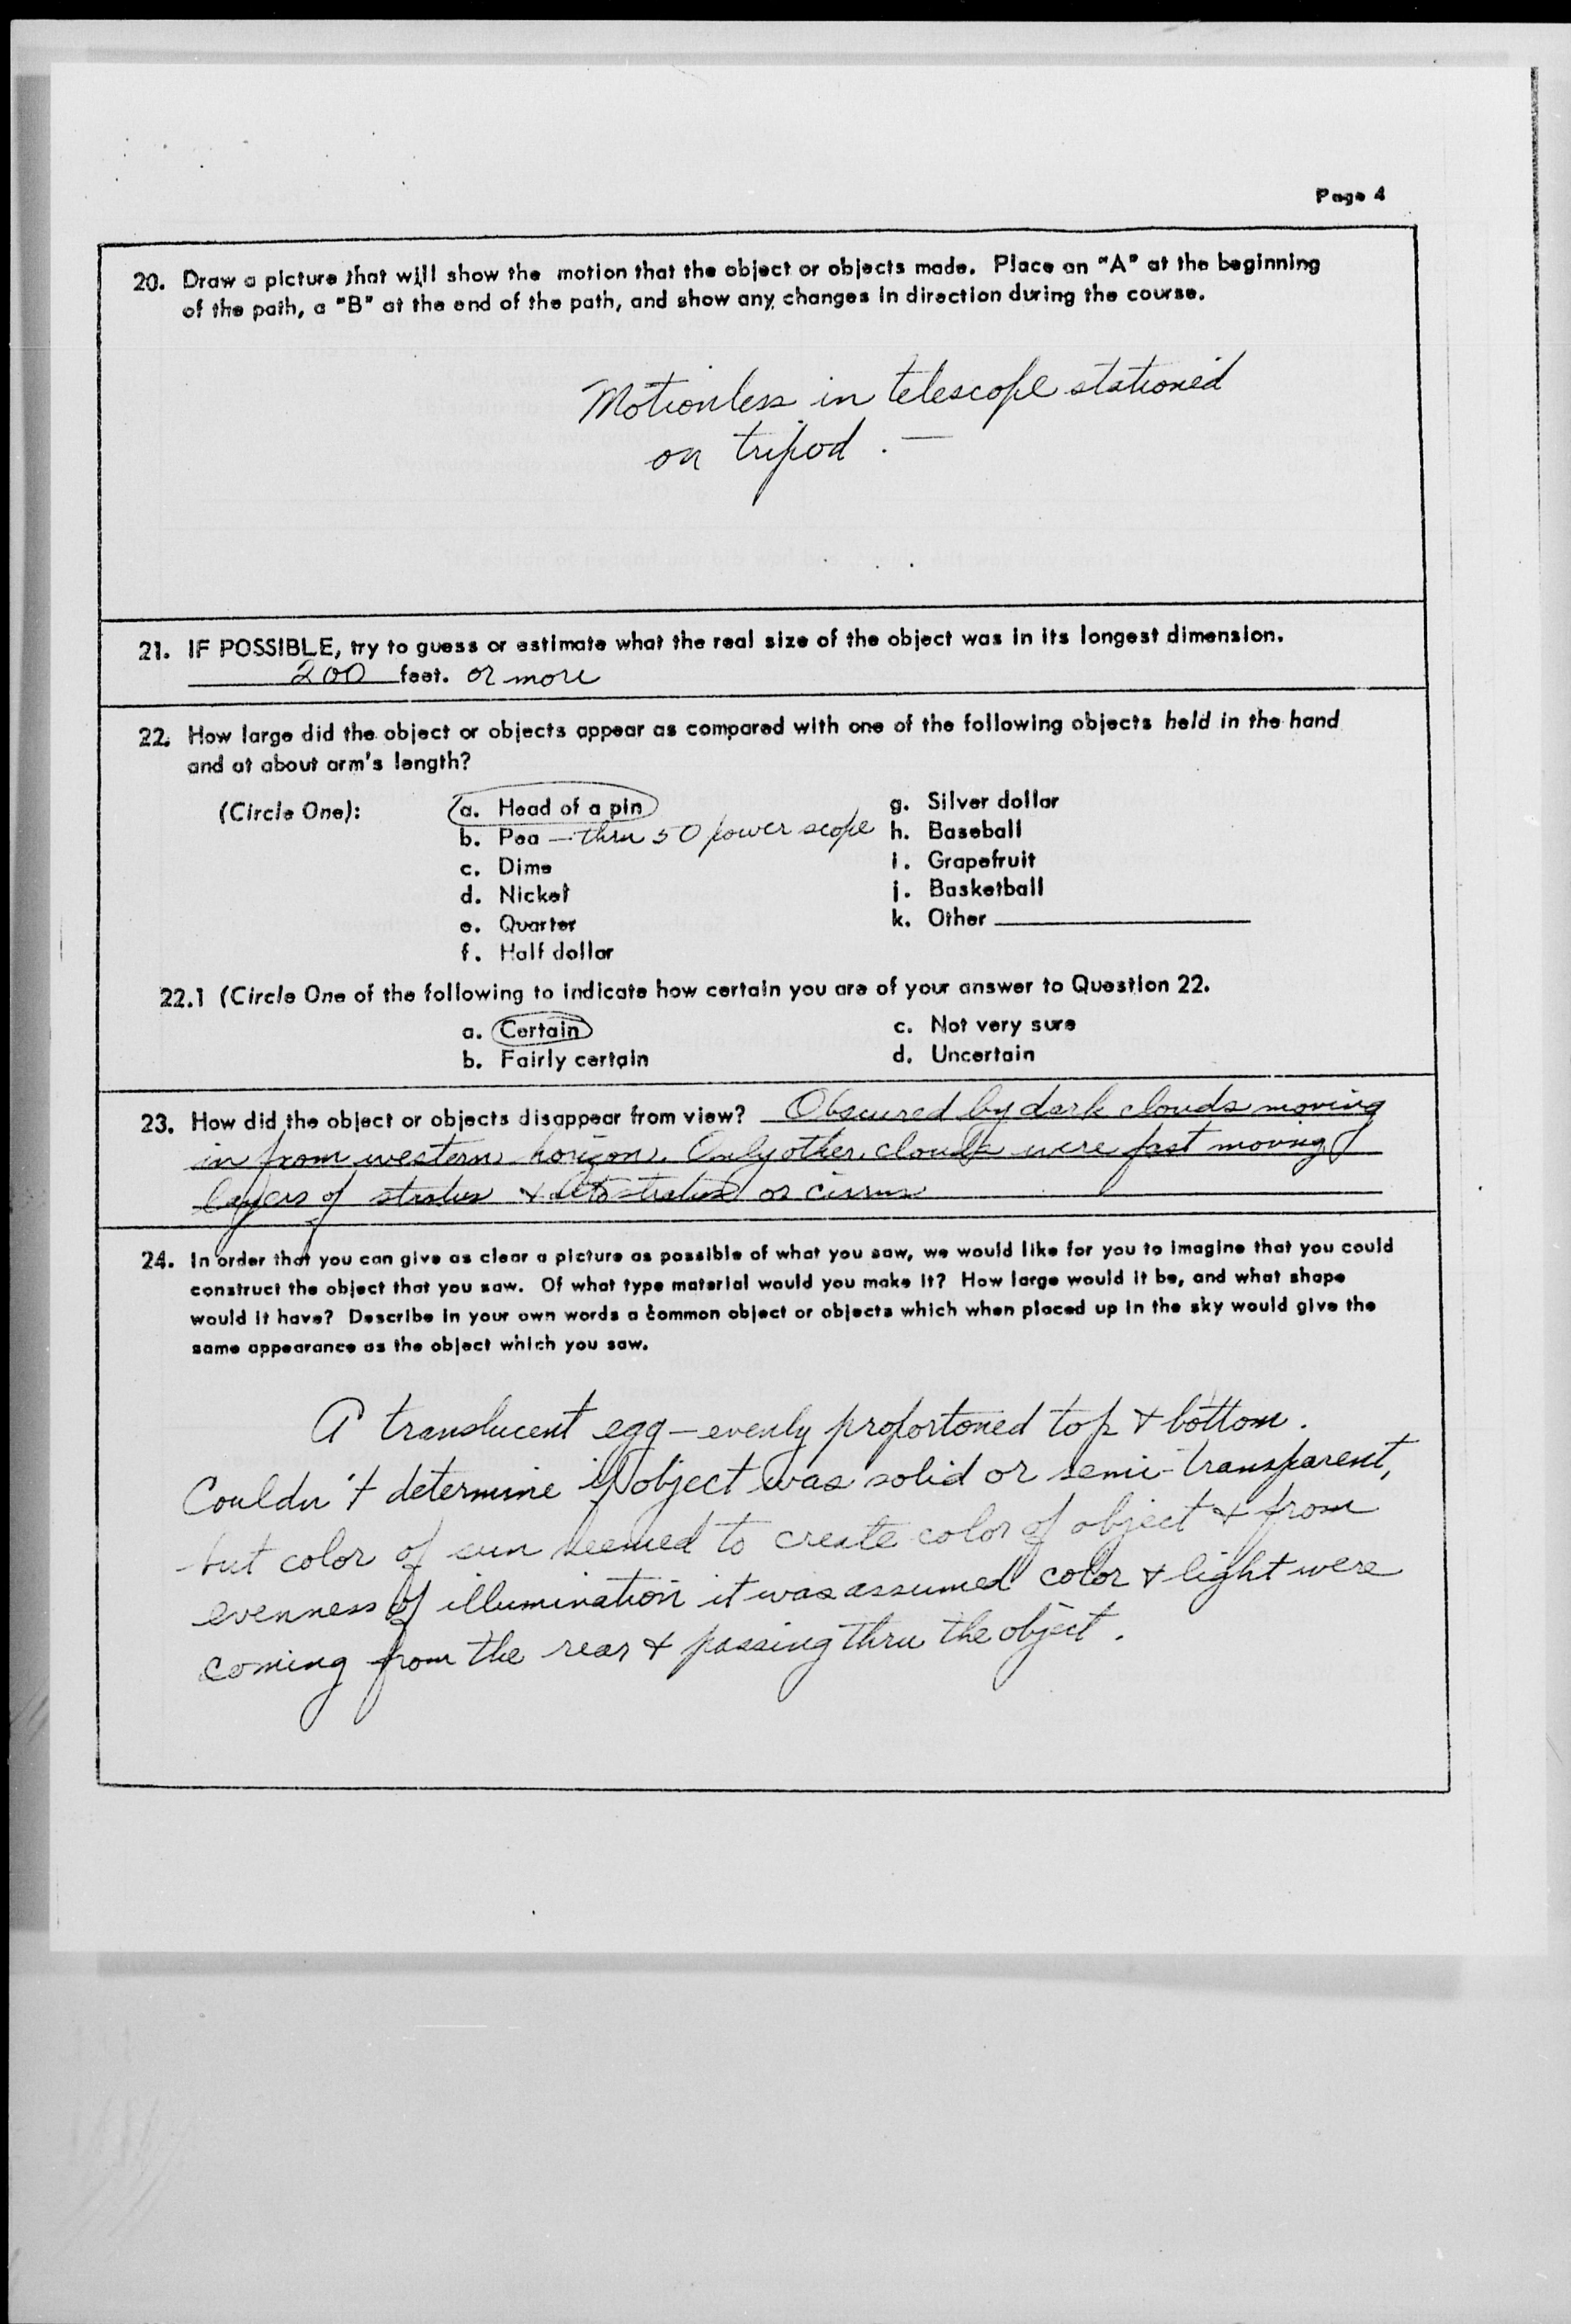 Page 4
20. Draw a picture that will show the motion that the object or objects made. Place an "A" at the beginning
of the path, a "B" at the end of the path, and show any changes in direction during the course.
Motionless in telescope stationed
on tripod. —
21. IF POSSIBLE, try to guess or estimate what the real size of the object was in its longest dimension.
200 feet. or more
22. How large did the object or objects appear as compared with one of the following objects held in the hand
and at about arm's length?
(Circle One):
a. Head of a pin
b. Pea — thru 50 power scope
c. Dime
d. Nickel
e. Quarter
f. Half dollar
g. Silver dollar
h. Baseball
i. Grapefruit
j. Basketball
k. Other
22.1 (Circle One of the following to indicate how certain you are of your answer to Question 22.
a. Certain
b. Fairly certain
c. Not very sure
d. Uncertain
23. How did the object or objects disappear from view? Obscured by dark clouds moving
in from western horizon. Only other clouds were fast moving
layers of stratus & alto stratus or cirrus
24. In order that you can give as clear a picture as possible of what you saw, we would like for you to imagine that you could
construct the object that you saw. Of what type material would you make it? How large would it be, and what shape
would it have? Describe in your own words a common object or objects which when placed up in the sky would give the
same appearance as the object which you saw.
A translucent egg — evenly proportoned top & bottom.
Couldn't determine if object was solid or semi-transparent,
but color of sun seemed to create color of object & from
evenness of illumination it was assumed color & light were
coming from the rear & passing thru the object.